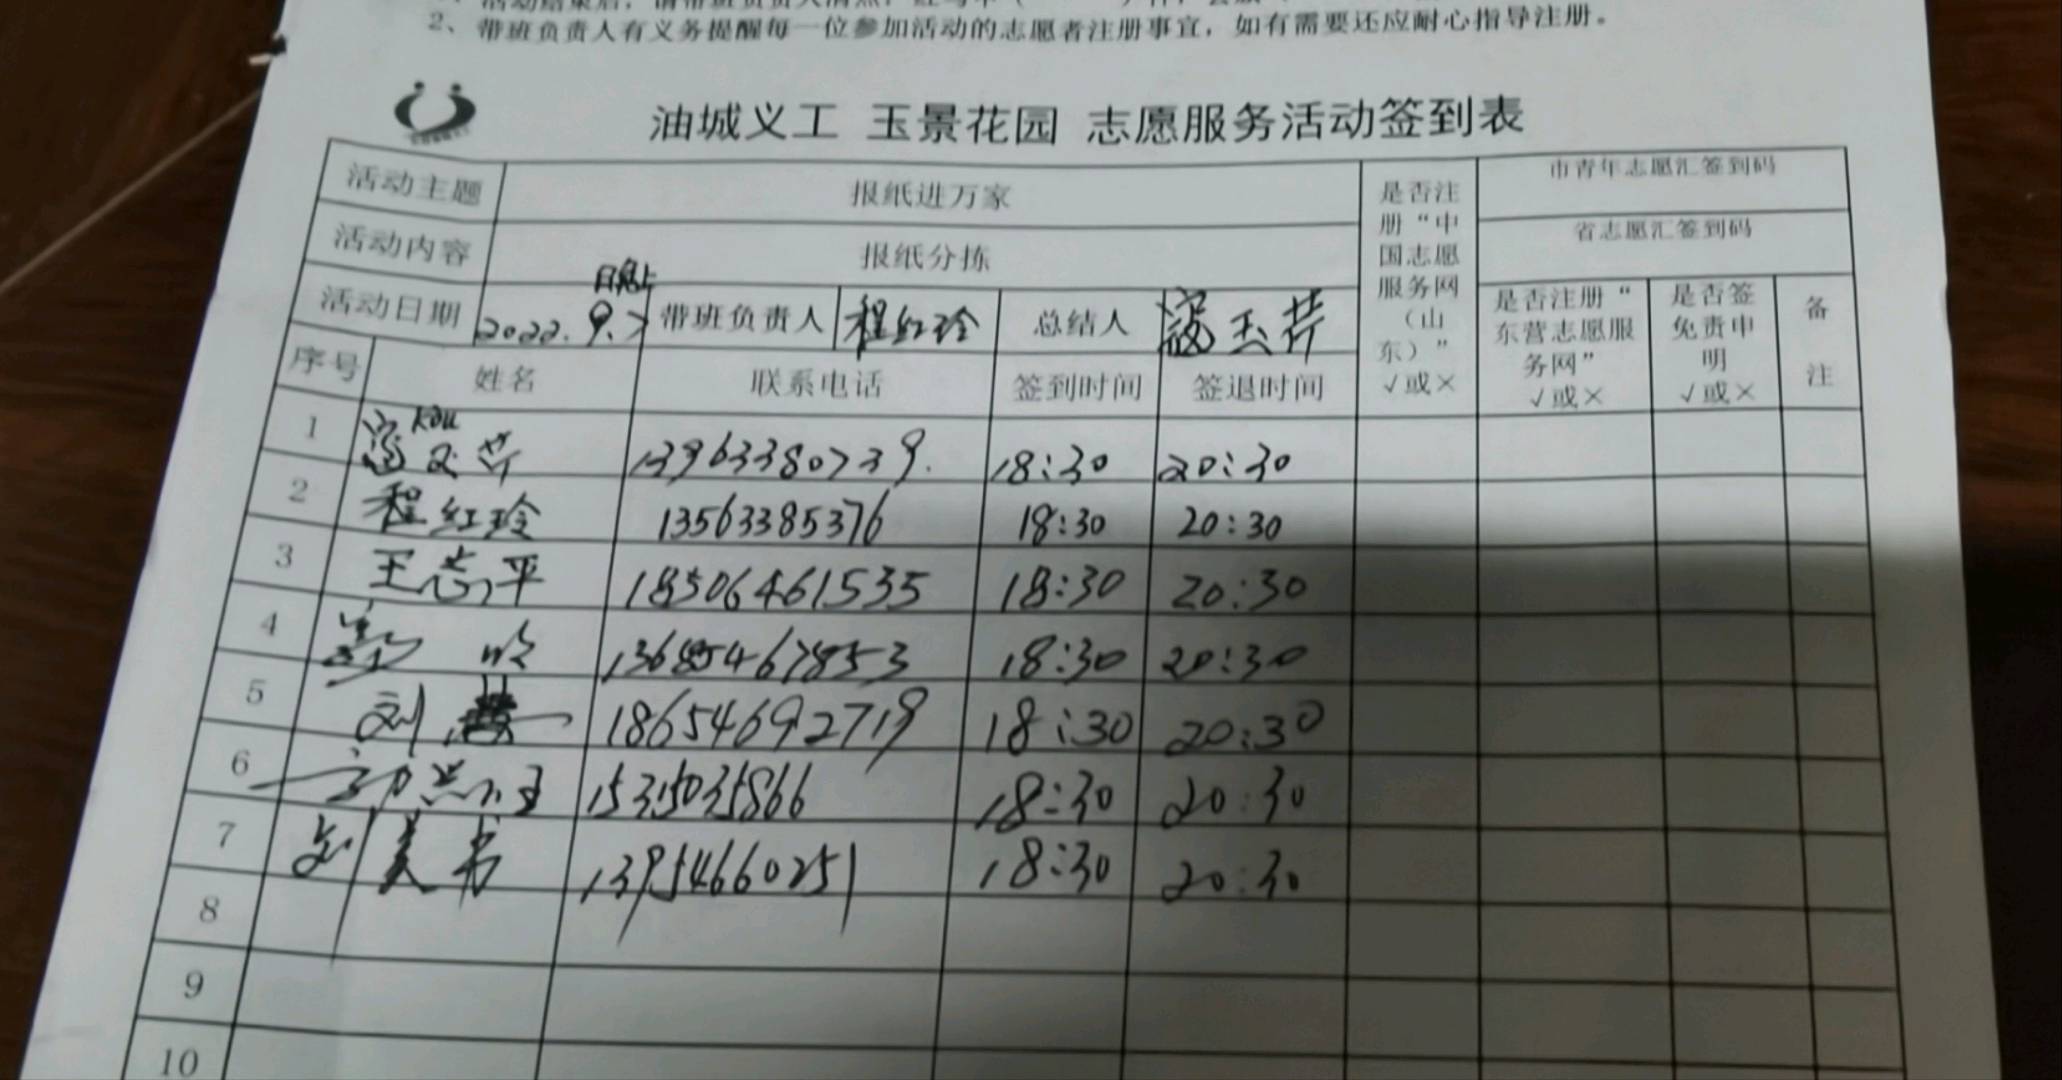 2、带班负责人有义务提醒每一位参加活动的志愿者注册事宜，如有需要还应耐心指导注册。
油城义工 玉景花园 志愿服务活动签到表
活动主题 报纸进万家
活动内容 报纸分拣
活动日期 2022.9.7 带班负责人 程红玲 总结人 寇玉芹
是否注册“中国志愿服务网（山东）”√或×
市青年志愿汇签到码
省志愿汇签到码
是否注册“东营志愿服务网”√或×
是否签免责申明√或×
备注
序号 姓名 联系电话 签到时间 签退时间
1 寇玉芹 kou 13963380739. 18:30 20:30
2 程红玲 13563385376 18:30 20:30
3 王志平 18506461535 18:30 20:30
4 13685467853 18:30 20:30
5 刘 18654692719 18:30 20:30
6 15315035866 18:30 20:30
7 刘美书 13954660251 18:30 20:30
8
9
10